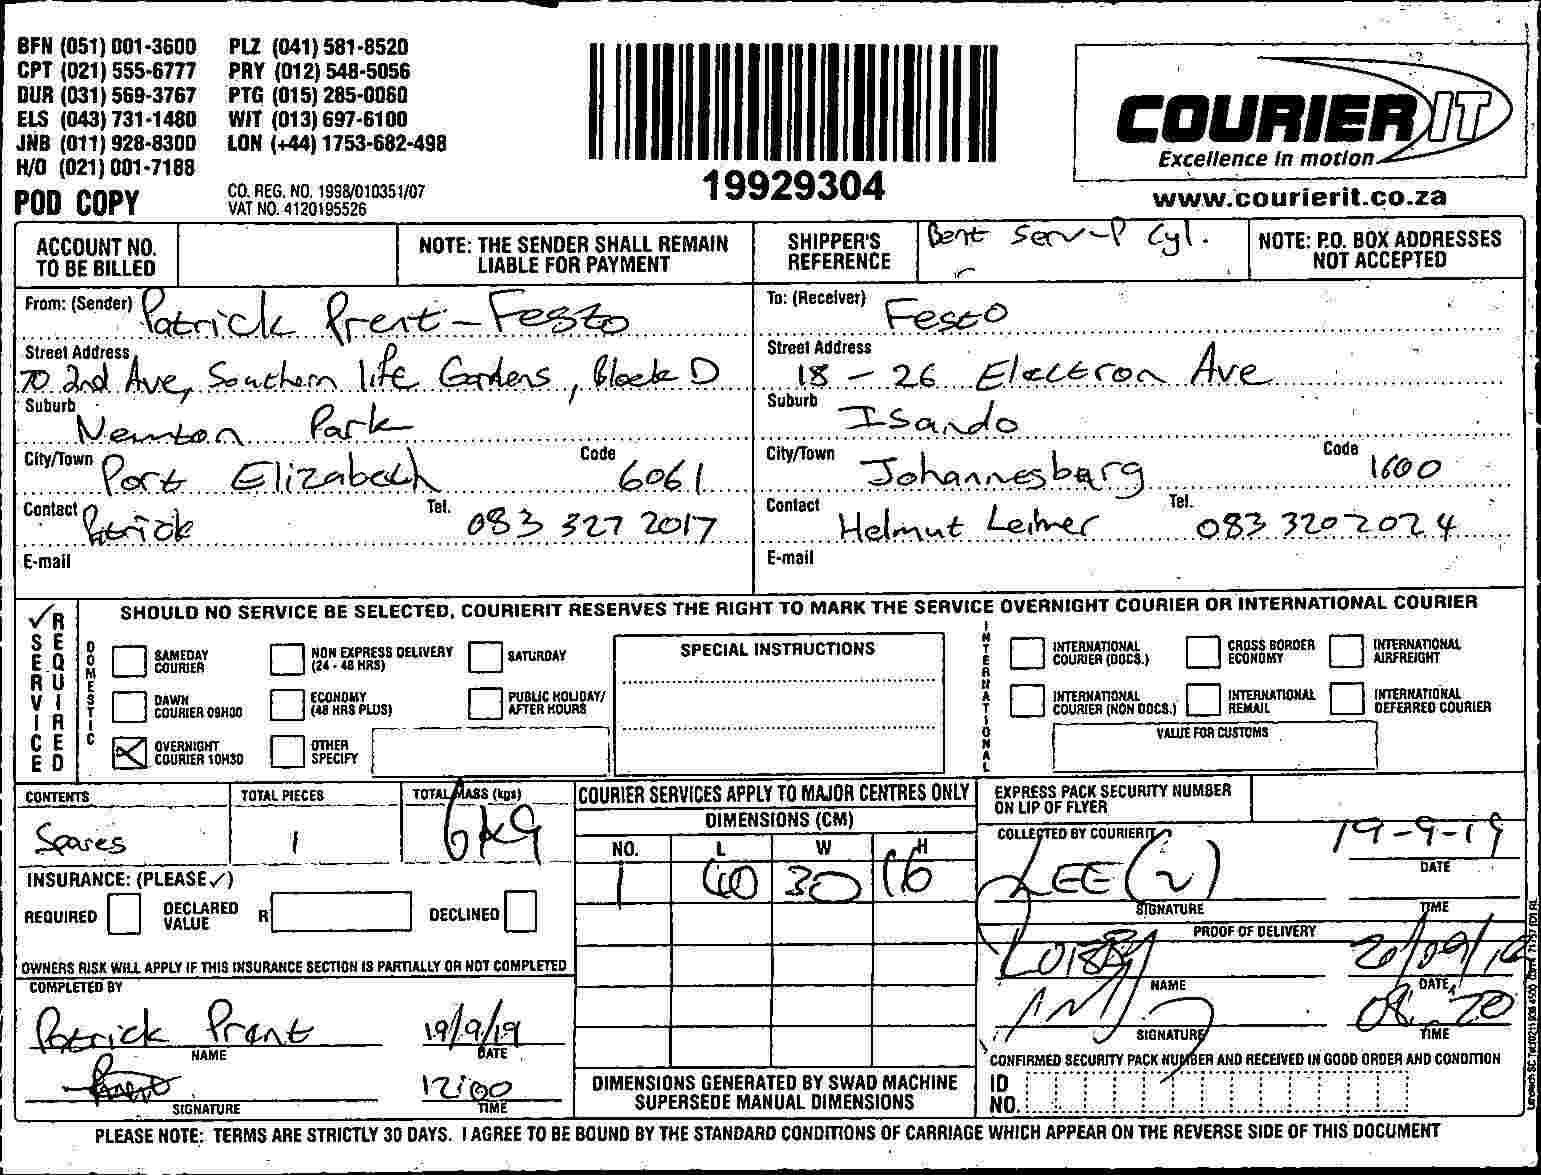 BFN (051) 001-3600 PLZ (041) 581-8520
CPT (021) 555-6777 PRY (012) 548-5056
DUR (031) 569-3767 PTG (015) 285-0060
ELS (043) 731-1480 WIT (013) 697-6100
JNB (011) 928-8300 LON (+44) 1753-682-498
H/O (021) 001-7188
POD COPY
CO. REG. NO. 1998/010351/07
VAT NO. 4120195526
19929304
COURIER IT
Excellence in motion
www.courierit.co.za
ACCOUNT NO. TO BE BILLED
NOTE: THE SENDER SHALL REMAIN LIABLE FOR PAYMENT
SHIPPER'S REFERENCE Bent Serv-P Cyl.
NOTE: P.O. BOX ADDRESSES NOT ACCEPTED
From: (Sender) Patrick Prent - Festo
Street Address 70 2nd Ave, Southern life Gardens, Block D
Suburb Newton Park
City/Town Port Elizabeth Code 6061
Contact Patrick Tel. 083 327 2017
E-mail
To: (Receiver) Festo
Street Address 18 - 26 Electron Ave
Suburb Isando
City/Town Johannesburg Code 1600
Contact Helmut Leitner Tel. 083 320 2024
E-mail
SERVICE REQUIRED
SHOULD NO SERVICE BE SELECTED, COURIERIT RESERVES THE RIGHT TO MARK THE SERVICE OVERNIGHT COURIER OR INTERNATIONAL COURIER
DOMESTIC
SAMEDAY COURIER
NON EXPRESS DELIVERY (24 - 48 HRS)
SATURDAY
DAWN COURIER 09H00
ECONOMY (48 HRS PLUS)
PUBLIC HOLIDAY/ AFTER HOURS
OVERNIGHT COURIER 10H30
OTHER SPECIFY
SPECIAL INSTRUCTIONS
INTERNATIONAL
INTERNATIONAL COURIER (DOCS.)
CROSS BORDER ECONOMY
INTERNATIONAL AIRFREIGHT
INTERNATIONAL COURIER (NON DOCS.)
INTERNATIONAL REMAIL
INTERNATIONAL DEFERRED COURIER
VALUE FOR CUSTOMS
CONTENTS Spares
TOTAL PIECES 1
TOTAL MASS (kgs) 6kg
INSURANCE: (PLEASE ✓)
REQUIRED
DECLARED VALUE R
DECLINED
OWNERS RISK WILL APPLY IF THIS INSURANCE SECTION IS PARTIALLY OR NOT COMPLETED
COMPLETED BY
Patrick Prent 19/9/19
NAME DATE
12:00
SIGNATURE TIME
COURIER SERVICES APPLY TO MAJOR CENTRES ONLY
DIMENSIONS (CM)
NO. L W H
1 40 30 16
DIMENSIONS GENERATED BY SWAD MACHINE SUPERSEDE MANUAL DIMENSIONS
EXPRESS PACK SECURITY NUMBER ON LIP OF FLYER
COLLECTED BY COURIERIT
LEE 19-9-19
DATE
SIGNATURE TIME
PROOF OF DELIVERY
NAME DATE
08:20
SIGNATURE TIME
CONFIRMED SECURITY PACK NUMBER AND RECEIVED IN GOOD ORDER AND CONDITION
ID NO.
PLEASE NOTE: TERMS ARE STRICTLY 30 DAYS. I AGREE TO BE BOUND BY THE STANDARD CONDITIONS OF CARRIAGE WHICH APPEAR ON THE REVERSE SIDE OF THIS DOCUMENT